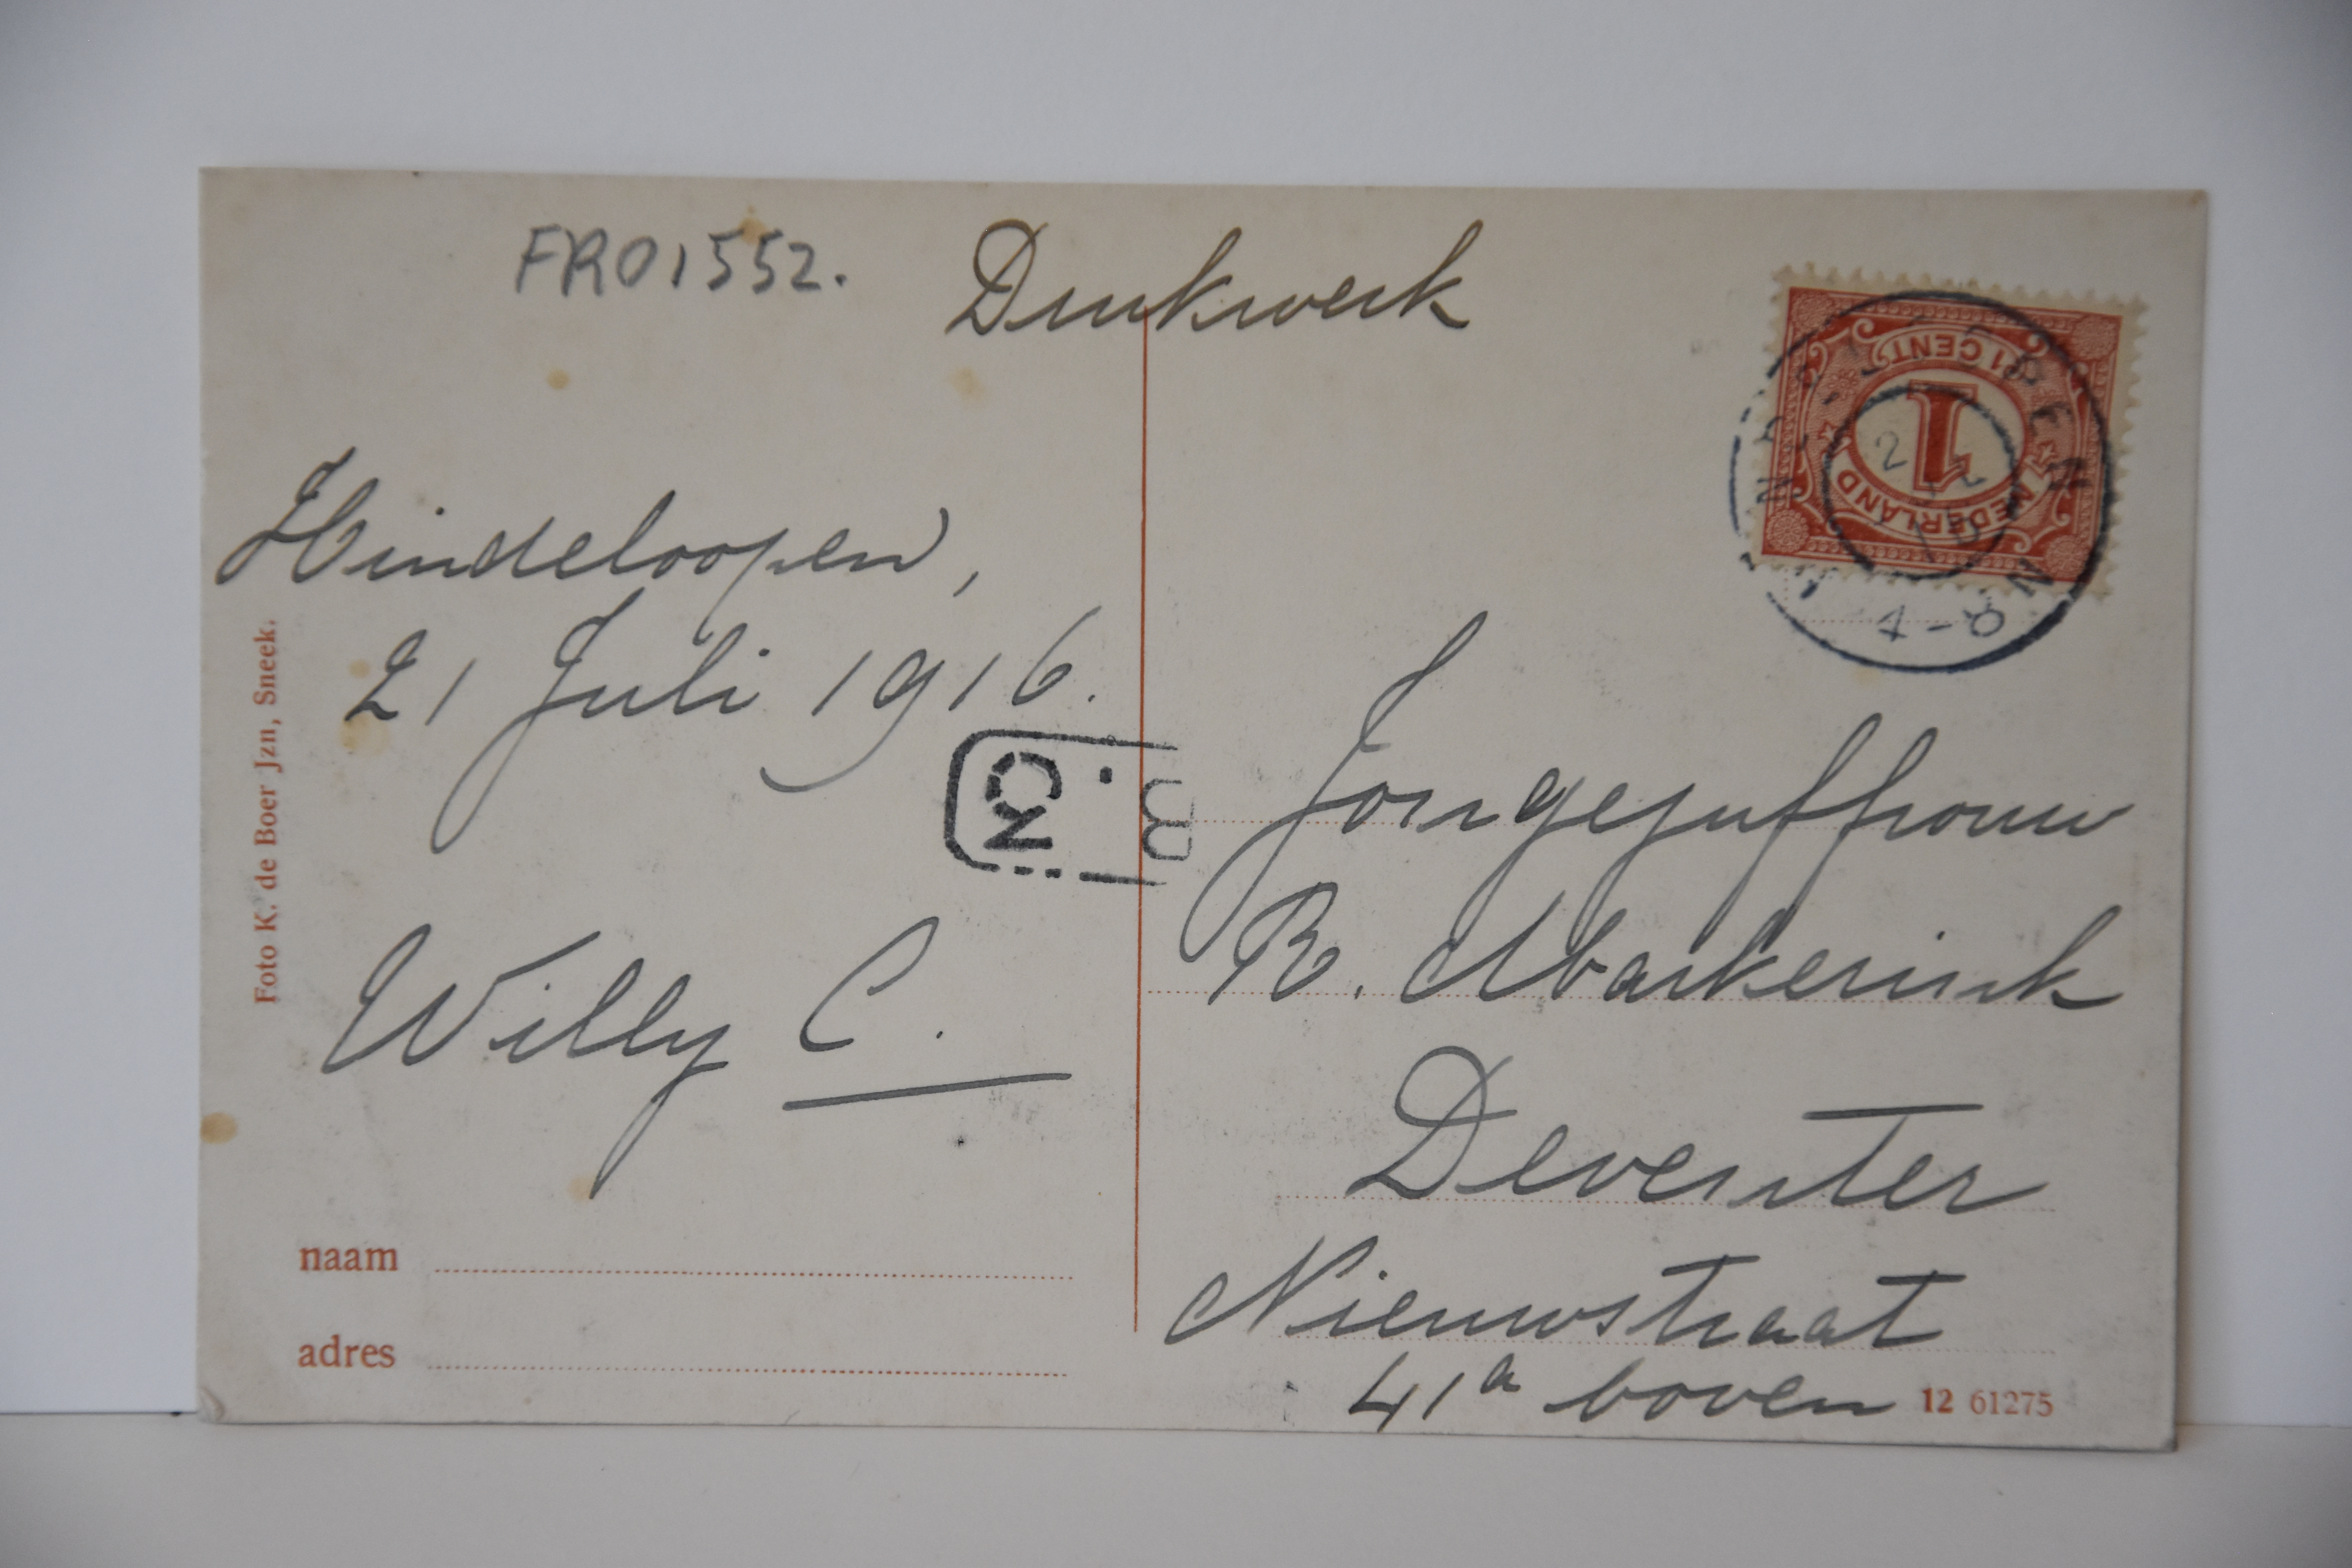 FRO1552.
Drukwerk
1 CENT
1
NEDERLAND
Hindeloopen,
21 Juli 1916.
Willy C.
Foto K. de Boer Jzn, Sneek.
naam
adres
NO. 3
Jongejuffrouw
R. Markerink
Deventer
Nieuwstraat
41a boven
12 61275